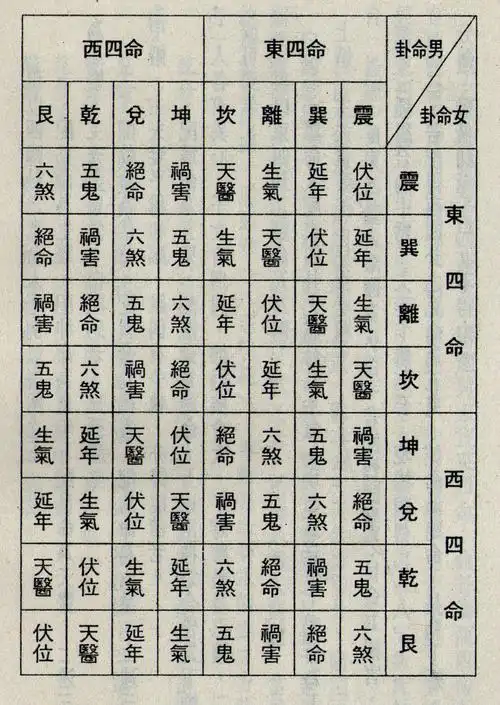 西四命 東四命 卦命男
卦命女
艮 乾 兌 坤 坎 離 巽 震
東四命
六煞 五鬼 絕命 禍害 天醫 生氣 延年 伏位 震
絕命 禍害 六煞 五鬼 生氣 天醫 伏位 延年 巽
禍害 絕命 五鬼 六煞 延年 伏位 天醫 生氣 離
五鬼 六煞 禍害 絕命 伏位 延年 生氣 天醫 坎
西四命
生氣 延年 天醫 伏位 絕命 六煞 五鬼 禍害 坤
延年 生氣 伏位 天醫 禍害 五鬼 六煞 絕命 兌
天醫 伏位 生氣 延年 六煞 絕命 禍害 五鬼 乾
伏位 天醫 延年 生氣 五鬼 禍害 絕命 六煞 艮